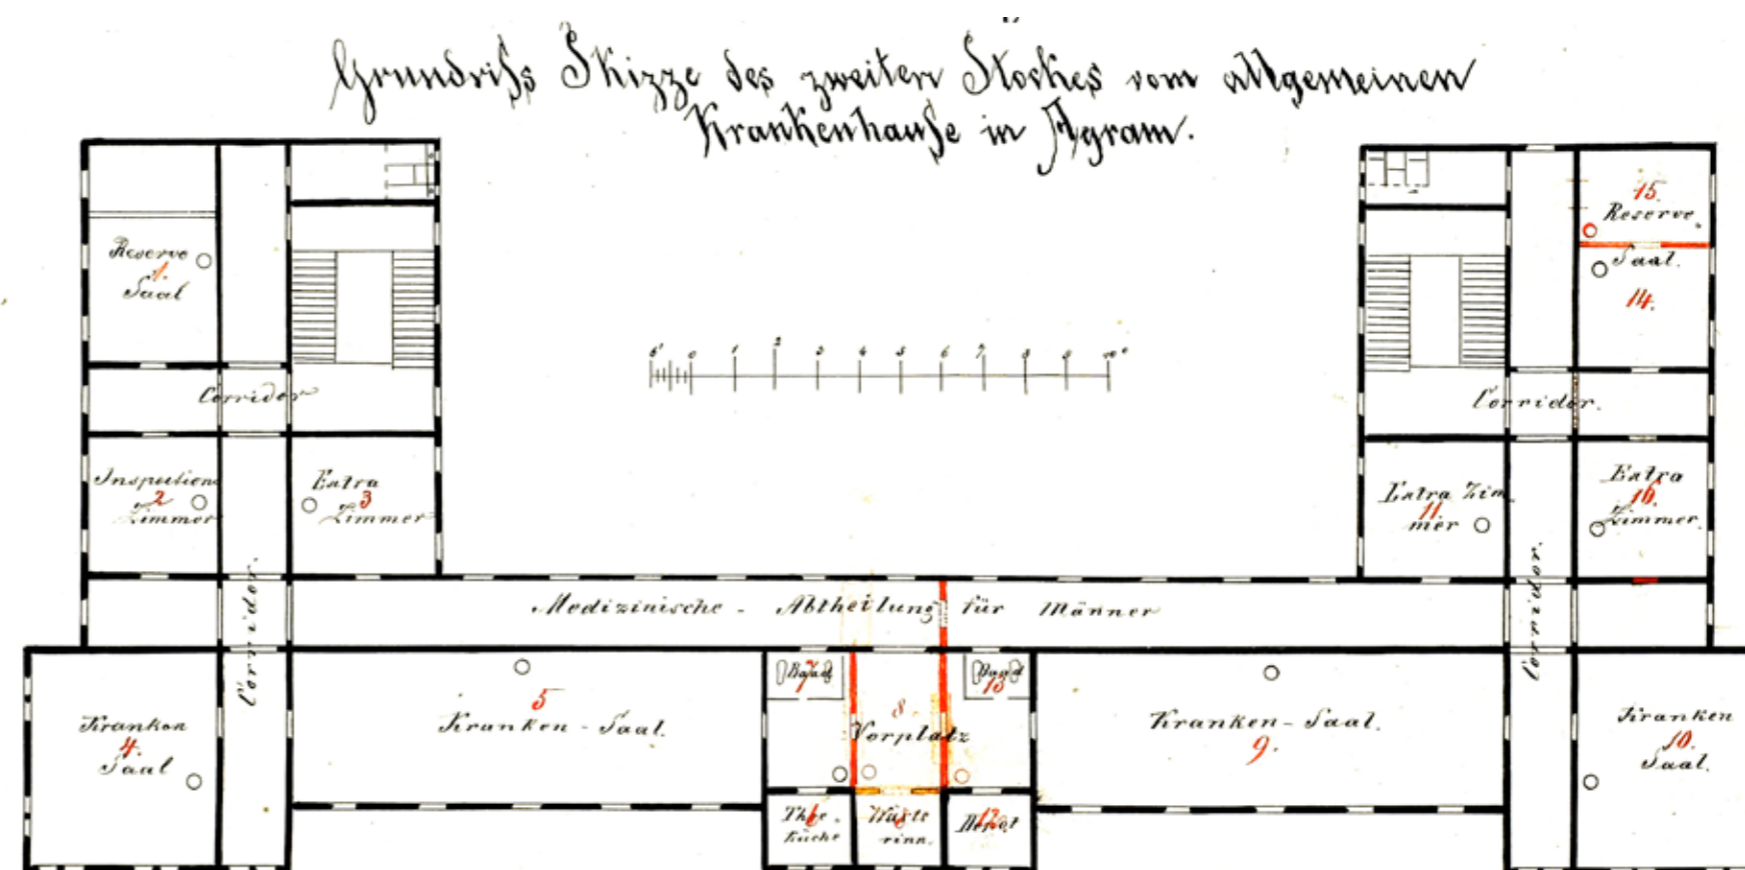 Grundriss Skizze des zweiten Stockes vom allgemeinen
Krankenhause in Agram.
Reserve
1.
Saal
15.
Reserve
Saal.
14.
6' 0 1 2 3 4 5 6 7 8 9 10°
Corridor
Corridor.
Inspections
2
Zimmer
Extra
3
Zimmer
Extra Zim
11.
mer
Extra
16.
Zimmer.
Corridor.
Medizinische - Abtheilung für Männer
Corridor
Kranken
4.
Saal
5
Kranken-Saal.
7
Baad
8.
Vorplatz
Baad
13
Kranken-Saal.
9.
Kranken
10.
Saal.
Thee-
6
küche
Wärte
rinn.
12.